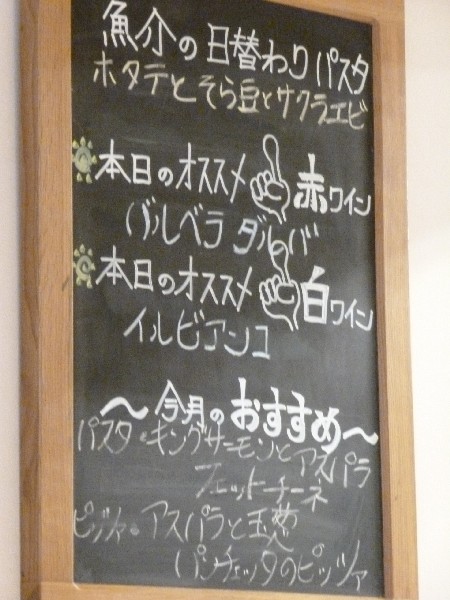 魚介の日替わりパスタ
ホタテとそら豆とサクラエビ
本日のオススメ 赤ワイン
バルベラ ダルバ
本日のオススメ 白ワイン
イルビアンコ
〜今月のおすすめ〜
パスタ・キングサーモンとアスパラ
フェットチーネ
ピッツァ・アスパラと玉葱
パンチェッタのピッツァ